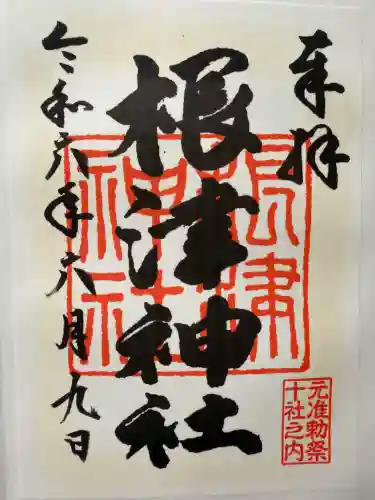 奉拝
根津神社
令和六年六月九日
根津
神社
元准勅祭
十社之内